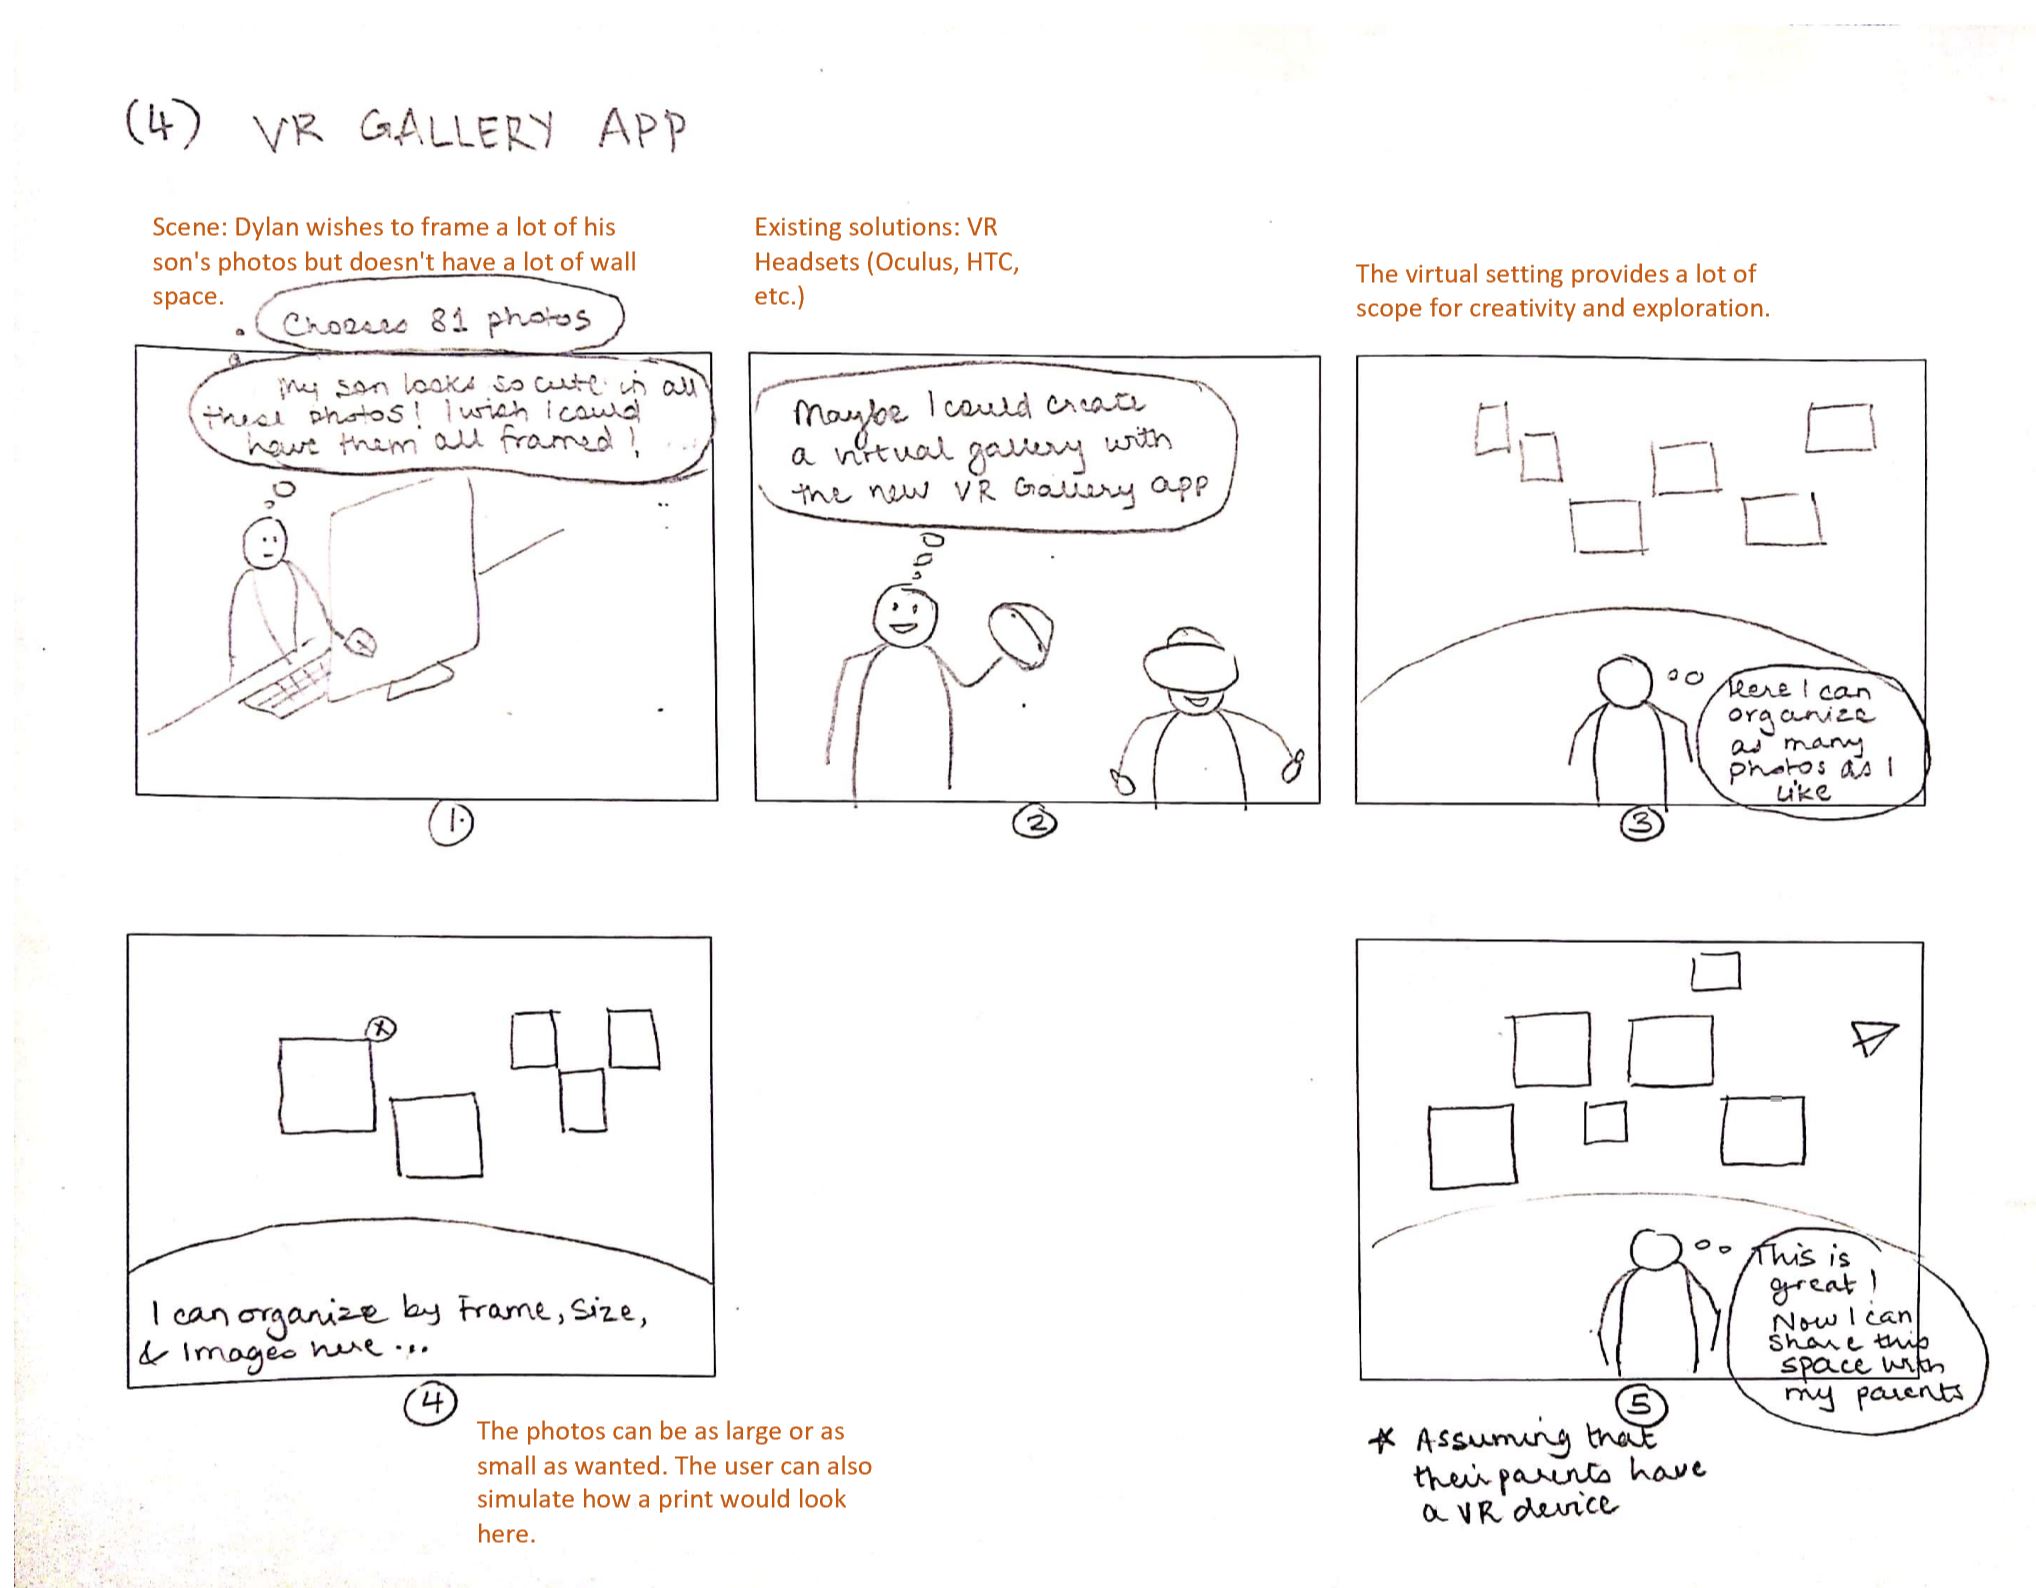 (4) VR GALLERY APP
Scene: Dylan wishes to frame a lot of his
son's photos but doesn't have a lot of wall
space.
Chooses 81 photos
My son looks so cute in all
these photos! I wish I could
have them all framed!
1.
Existing solutions: VR
Headsets (Oculus, HTC,
etc.)
Maybe I could create
a virtual gallery with
the new VR Gallery app
2
The virtual setting provides a lot of
scope for creativity and exploration.
Here I can
organize
as many
photos as I
like
3
x
I can organize by Frame, Size,
& Images here ...
4
The photos can be as large or as
small as wanted. The user can also
simulate how a print would look
here.
This is
great!
Now I can
share this
space with
my parents
5
* Assuming that
their parents have
a VR device